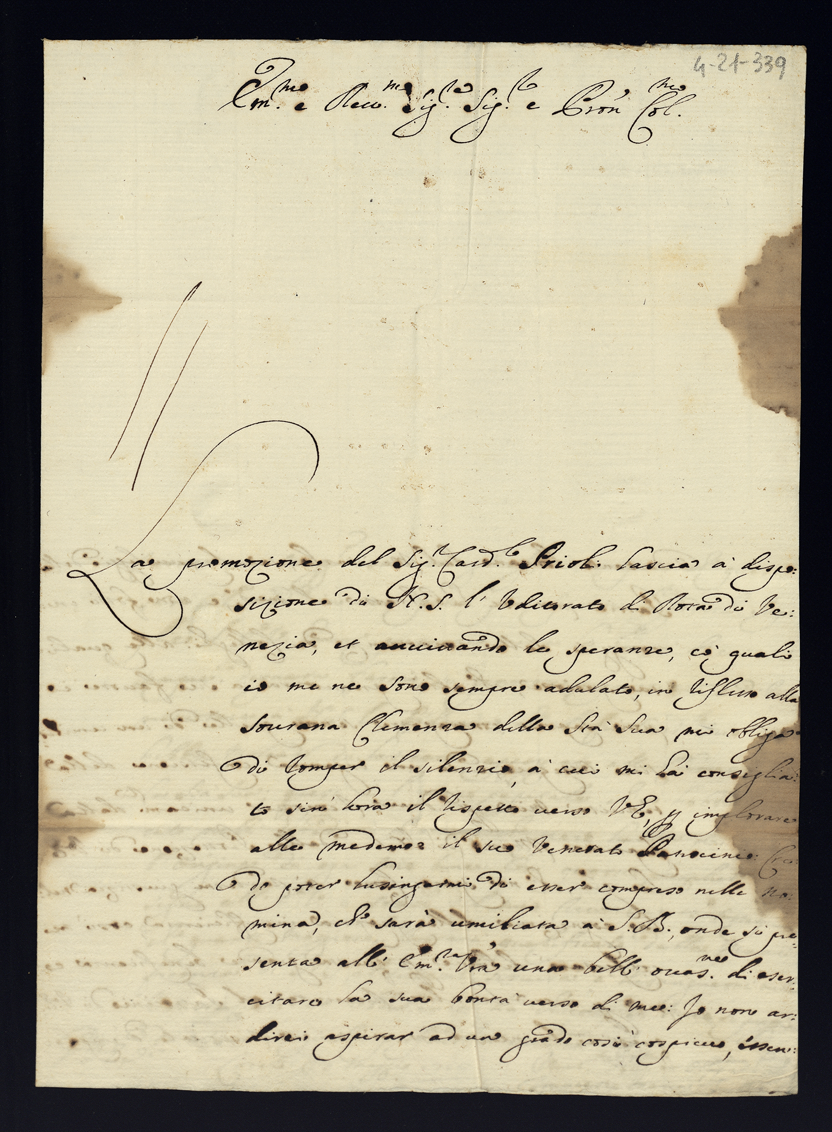 4-21-339
Em.mo e Reu.mo Sig.re Sig.r e Pron Col.mo
La promozione del Sig.r Card.le Prioli lascia à dispo:
sizione di N.S. l'Uditorato di Rota di Ve:
nezia, et auuiuando le speranze, cò quali
io me ne sono sempre adulato, in riflesso alla
sourana Clemenza della Stà Sua mi obliga
di romper il silenzio, à cui mi hà consiglia:
to sin' hora il rispetto verso V.E., p implorare
alle medeme il suo Venerato Patrocinio
do poter lusingarmi di esser compreso nella no:
mina, che sarà umiliata à S.B., onde si pre:
senta all' Em.za Vra una bell' occas.ne di eser:
citare la sua bontà verso di me: Io non ar:
direi aspirar ad un grado così cospicuo, essen: